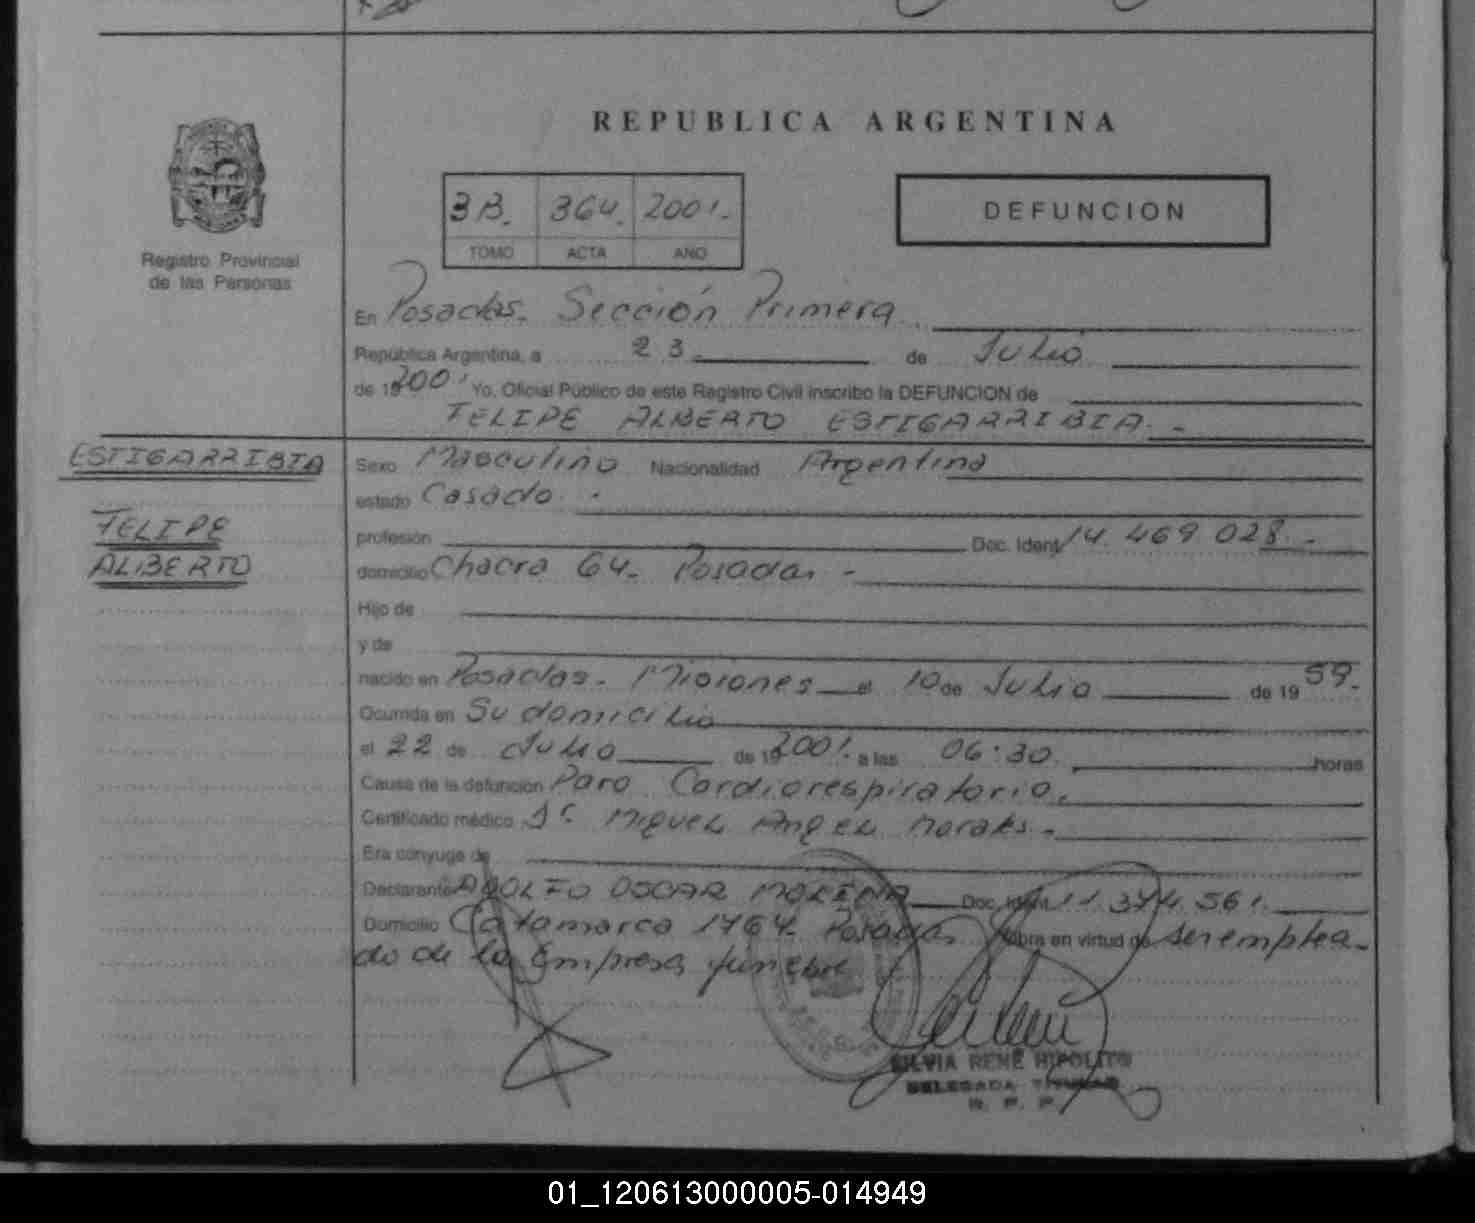 REPUBLICA ARGENTINA
3B. 364. 2001.
TOMO ACTA AÑO
DEFUNCION
Registro Provincial
de las Personas
En Posadas. Sección Primera
República Argentina, a 23 de Julio
de 19 2001 Yo. Oficial Público de este Registro Civil inscribo la DEFUNCION de
FELIPE ALBERTO ESTIGARRIBIA. -
ESTIGARRIBIA
FELIPE
ALBERTO
Sexo Masculino Nacionalidad Argentina
estado Casado. -
profesión Doc. Ident. 14.469.028. -
domicilio Chacra 64. Posadas -
Hijo de
y de
nacido en Posadas. Misiones el 10 de Julio de 19 59.
Ocurrida en Su domicilio
el 22 de Julio de 19 2001. a las 06:30. horas
Causa de la defunción Paro Cardiorespiratorio.
Certificado médico Dr. Miguel Angel Morales. -
Era cónyuge de
Declarante ADOLFO OSCAR MOLINA Doc. Ident. 11.374.561.
Domicilio Catamarca 1764. Posadas Obra en virtud de ser emplea-
do de la Empresa fúnebre
SILVIA RENÉ HIPOLITO
DELEGADA TITULAR
R. P. P.
01_120613000005-014949